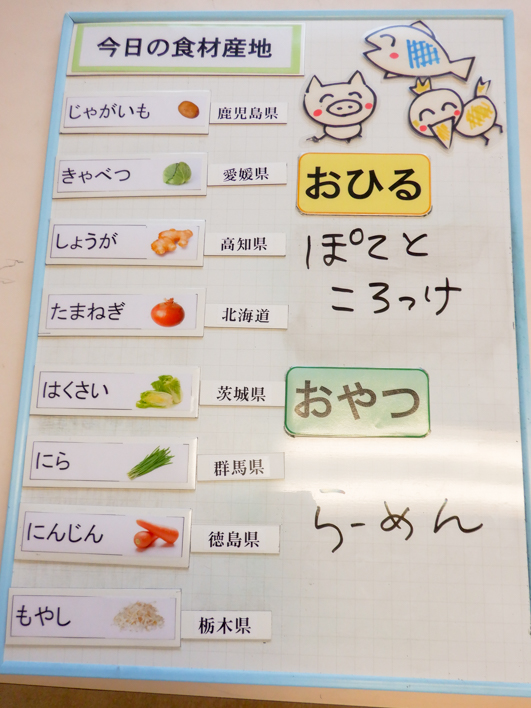 今日の食材産地
じゃがいも 鹿児島県
きゃべつ 愛媛県
しょうが 高知県
たまねぎ 北海道
はくさい 茨城県
にら 群馬県
にんじん 徳島県
もやし 栃木県
おひる
ぽてと
ころっけ
おやつ
らーめん